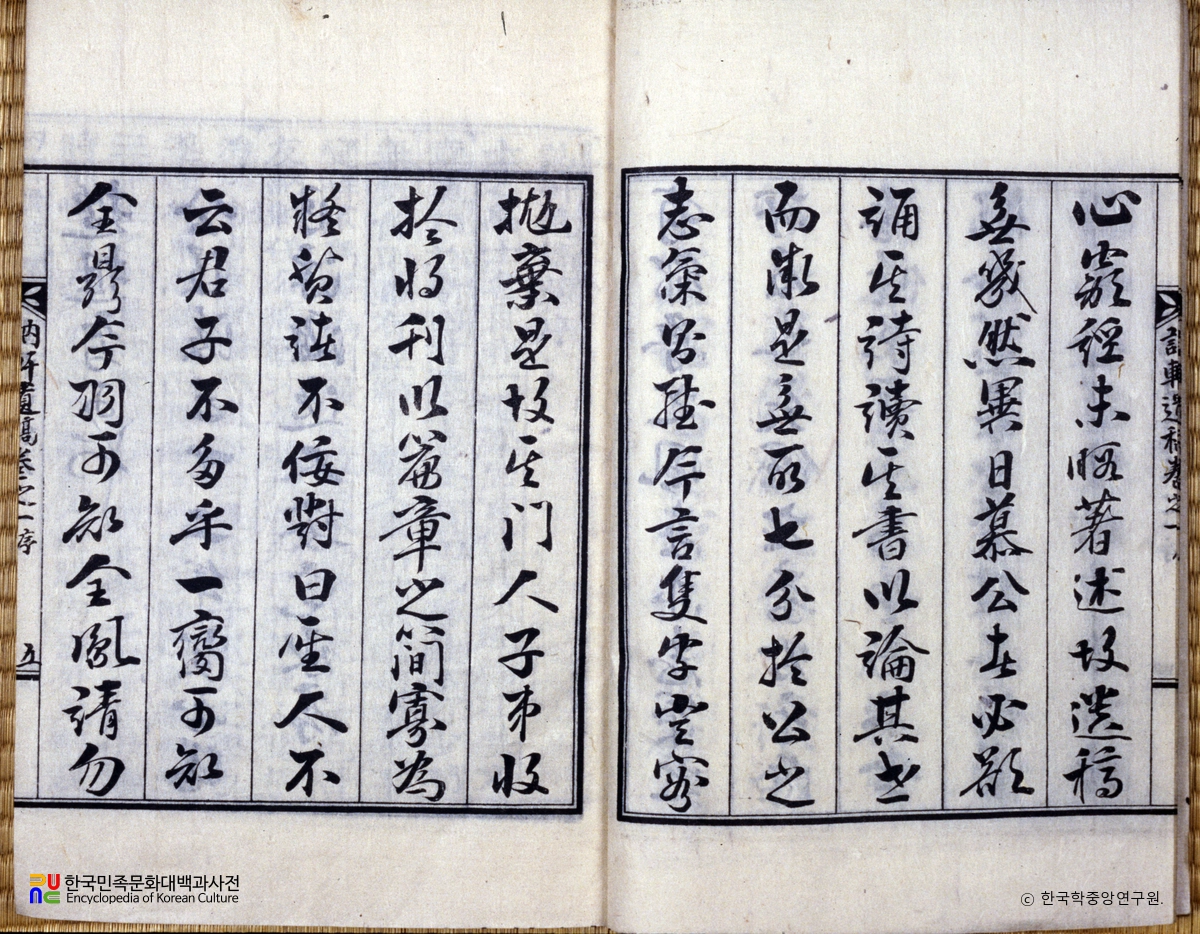 訥軒遺稿卷之一
心窮經未暇著述故遺稿
無幾然異日慕公者必欲
誦其詩讀其書以論其世
而微是無所七分於公之
志氣雖片言隻字豈容
拋棄是故其門人子弟收
拾將刊以篇章之簡寡為
疑質諸不佞對曰聖人不
云君子不多乎一臠可知
全鼎片羽可知全鳳請勿
訥軒遺稿卷之一 序 五
한국민족문화대백과사전
Encyclopedia of Korean Culture
ⓒ 한국학중앙연구원.